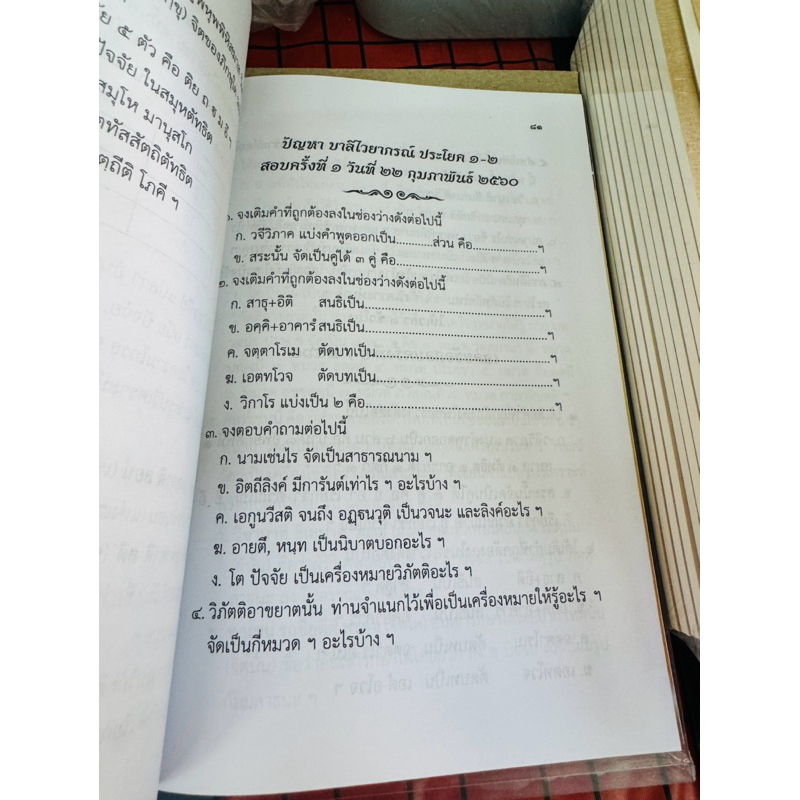 ๕ ตัว คือ ติย ถ
ปัจจัย ในสมุหตัทธิต
สมุโห มานุสโก
ตฺถีติ โภคี ฯ
๘๑
ปัญหา บาลีไวยากรณ์ ประโยค ๑-๒
สอบครั้งที่ ๑ วันที่ ๒๒ กุมภาพันธ์ ๒๕๖๐
๑. จงเติมคำที่ถูกต้องลงในช่องว่างดังต่อไปนี้
ก. วจีวิภาค แบ่งคำพูดออกเป็น..........ส่วน คือ..................ฯ
ข. สระนั้น จัดเป็นคู่ได้ ๓ คู่ คือ........................................ฯ
๒. จงเติมคำที่ถูกต้องลงในช่องว่างดังต่อไปนี้
ก. สาธุ+อิติ สนธิเป็น..................................................ฯ
ข. อคฺคิ+อาคารํ สนธิเป็น..................................................ฯ
ค. จตฺตาโรเม ตัดบทเป็น..................................................ฯ
ฆ. เอตทโวจ ตัดบทเป็น..................................................ฯ
ง. วิกาโร แบ่งเป็น ๒ คือ..................................................ฯ
๓. จงตอบคำถามต่อไปนี้
ก. นามเช่นไร จัดเป็นสาธารณนาม ฯ
ข. อิตถีลิงค์ มีการันต์เท่าไร ฯ อะไรบ้าง ฯ
ค. เอกูนวีสติ จนถึง อฏฺฐนวุติ เป็นวจนะ และลิงค์อะไร ฯ
ฆ. อายตึ, หนฺท เป็นนิบาตบอกอะไร ฯ
ง. โต ปัจจัย เป็นเครื่องหมายวิภัตติอะไร ฯ
๔. วิภัตติอาขยาตนั้น ท่านจำแนกไว้เพื่อเป็นเครื่องหมายให้รู้อะไร ฯ
จัดเป็นกี่หมวด ฯ อะไรบ้าง ฯ